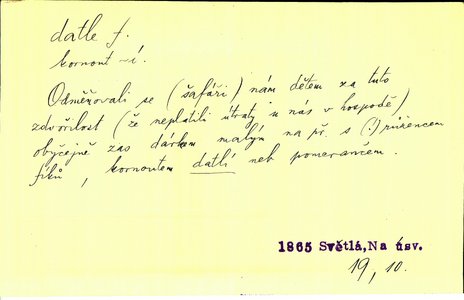 datle f.
kornout -í.
Odměňovali se (šafáři) nám dětem za tuto
zdvořilost (že neplatili útraty u nás v hospodě)
obyčejně zas dárkem malým na př. s (!) růžencem
fíků, kornoutem datlí neb pomerančem.
1865 Světlá, Na úsv.
19, 10.